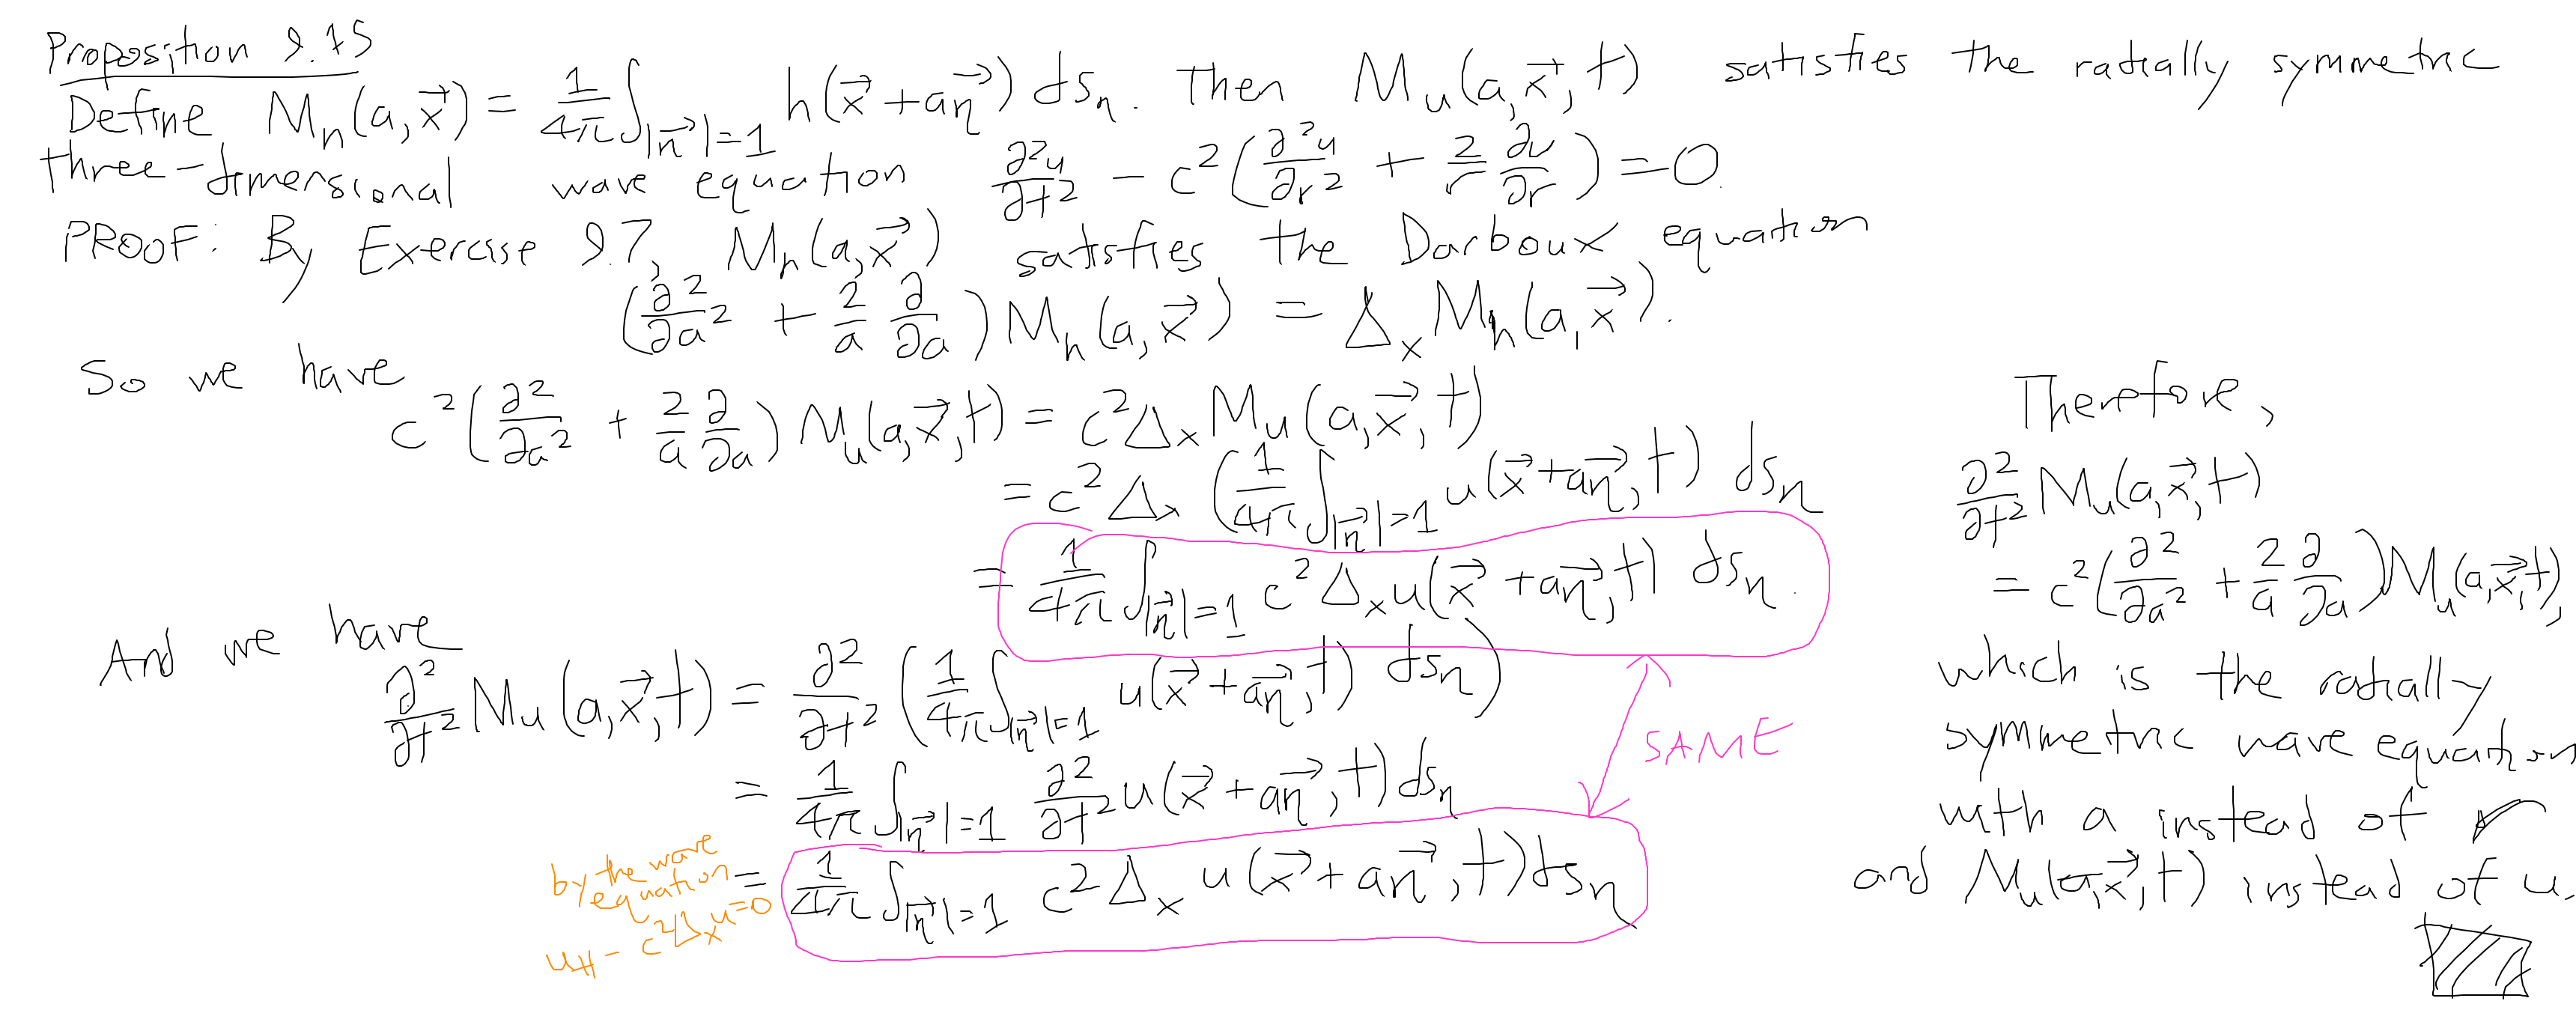 Proposition 9.15
Define M_h(a, \vec{x}) = \frac{1}{4\pi} \int_{|\vec{\eta}|=1} h(\vec{x} + a\vec{\eta}) dS_\eta. Then M_u(a, \vec{x}, t) satisfies the radially symmetric
three-dimensional wave equation \frac{\partial^2 u}{\partial t^2} - c^2 (\frac{\partial^2 u}{\partial r^2} + \frac{2}{r} \frac{\partial u}{\partial r}) = 0.
PROOF: By Exercise 9.7, M_h(a, \vec{x}) satisfies the Darboux equation
(\frac{\partial^2}{\partial a^2} + \frac{2}{a} \frac{\partial}{\partial a}) M_h(a, \vec{x}) = \Delta_x M_h(a, \vec{x}).
So we have
c^2 (\frac{\partial^2}{\partial a^2} + \frac{2}{a} \frac{\partial}{\partial a}) M_u(a, \vec{x}, t) = c^2 \Delta_x M_u(a, \vec{x}, t)
= c^2 \Delta_x (\frac{1}{4\pi} \int_{|\vec{\eta}|=1} u(\vec{x} + a\vec{\eta}, t) dS_\eta
= \frac{1}{4\pi} \int_{|\vec{\eta}|=1} c^2 \Delta_x u(\vec{x} + a\vec{\eta}, t) dS_\eta.
And we have
\frac{\partial^2}{\partial t^2} M_u(a, \vec{x}, t) = \frac{\partial^2}{\partial t^2} (\frac{1}{4\pi} \int_{|\vec{\eta}|=1} u(\vec{x} + a\vec{\eta}, t) dS_\eta)
SAME
= \frac{1}{4\pi} \int_{|\vec{\eta}|=1} \frac{\partial^2}{\partial t^2} u(\vec{x} + a\vec{\eta}, t) dS_\eta
= \frac{1}{4\pi} \int_{|\vec{\eta}|=1} c^2 \Delta_x u(\vec{x} + a\vec{\eta}, t) dS_\eta
by the wave
equation
u_{tt} - c^2 \Delta_x u = 0
Therefore,
\frac{\partial^2}{\partial t^2} M_u(a, \vec{x}, t)
= c^2 (\frac{\partial^2}{\partial a^2} + \frac{2}{a} \frac{\partial}{\partial a}) M_u(a, \vec{x}, t),
which is the radially
symmetric wave equation
with a instead of r
and M_u(a, \vec{x}, t) instead of u.